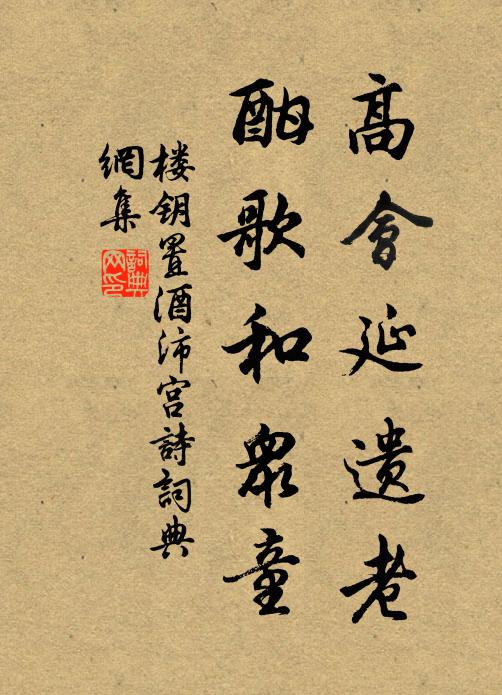 高會延遺老
酣歌和眾童
楼钥置酒沛宫詩詞典
網集
詞典网印